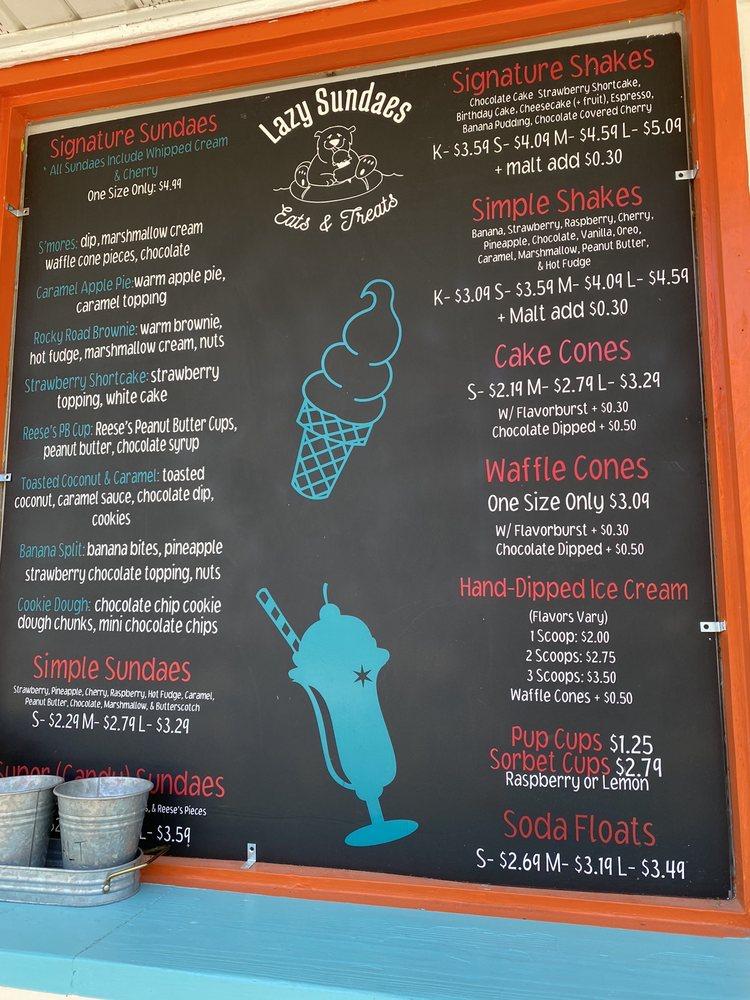 Signature Sundaes
* All Sundaes Include Whipped Cream
& Cherry
One Size Only: $4.99
S'mores: dip, marshmallow cream
waffle cone pieces, chocolate
Caramel Apple Pie: warm apple pie,
caramel topping
Rocky Road Brownie: warm brownie,
hot fudge, marshmallow cream, nuts
Strawberry Shortcake: strawberry
topping, white cake
Reese's PB Cup: Reese's Peanut Butter Cups,
peanut butter, chocolate syrup
Toasted Coconut & Caramel: toasted
coconut, caramel sauce, chocolate dip,
cookies
Banana Split: banana bites, pineapple
strawberry chocolate topping, nuts
Cookie Dough: chocolate chip cookie
dough chunks, mini chocolate chips
Simple Sundaes
Strawberry, Pineapple, Cherry, Raspberry, Hot Fudge, Caramel,
Peanut Butter, Chocolate, Marshmallow, & Butterscotch
S- $2.29 M- $2.79 L- $3.29
Super (Candy) Sundaes
& Reese's Pieces
L- $3.59
Lazy Sundaes
Eats & Treats
Signature Shakes
Chocolate Cake Strawberry Shortcake,
Birthday Cake, Cheesecake (+ fruit), Espresso,
Banana Pudding, Chocolate Covered Cherry
K- $3.59 S- $4.09 M- $4.59 L- $5.09
+ malt add $0.30
Simple Shakes
Banana, Strawberry, Raspberry, Cherry,
Pineapple, Chocolate, Vanilla, Oreo,
Caramel, Marshmallow, Peanut Butter,
& Hot Fudge
K- $3.09 S- $3.59 M- $4.09 L- $4.59
+ Malt add $0.30
Cake Cones
S- $2.19 M- $2.79 L- $3.29
W/ Flavorburst + $0.30
Chocolate Dipped + $0.50
Waffle Cones
One Size Only $3.09
W/ Flavorburst + $0.30
Chocolate Dipped + $0.50
Hand-Dipped Ice Cream
(Flavors Vary)
1 Scoop: $2.00
2 Scoops: $2.75
3 Scoops: $3.50
Waffle Cones + $0.50
Pup Cups $1.25
Sorbet Cups $2.79
Raspberry or Lemon
Soda Floats
S- $2.69 M- $3.19 L- $3.49